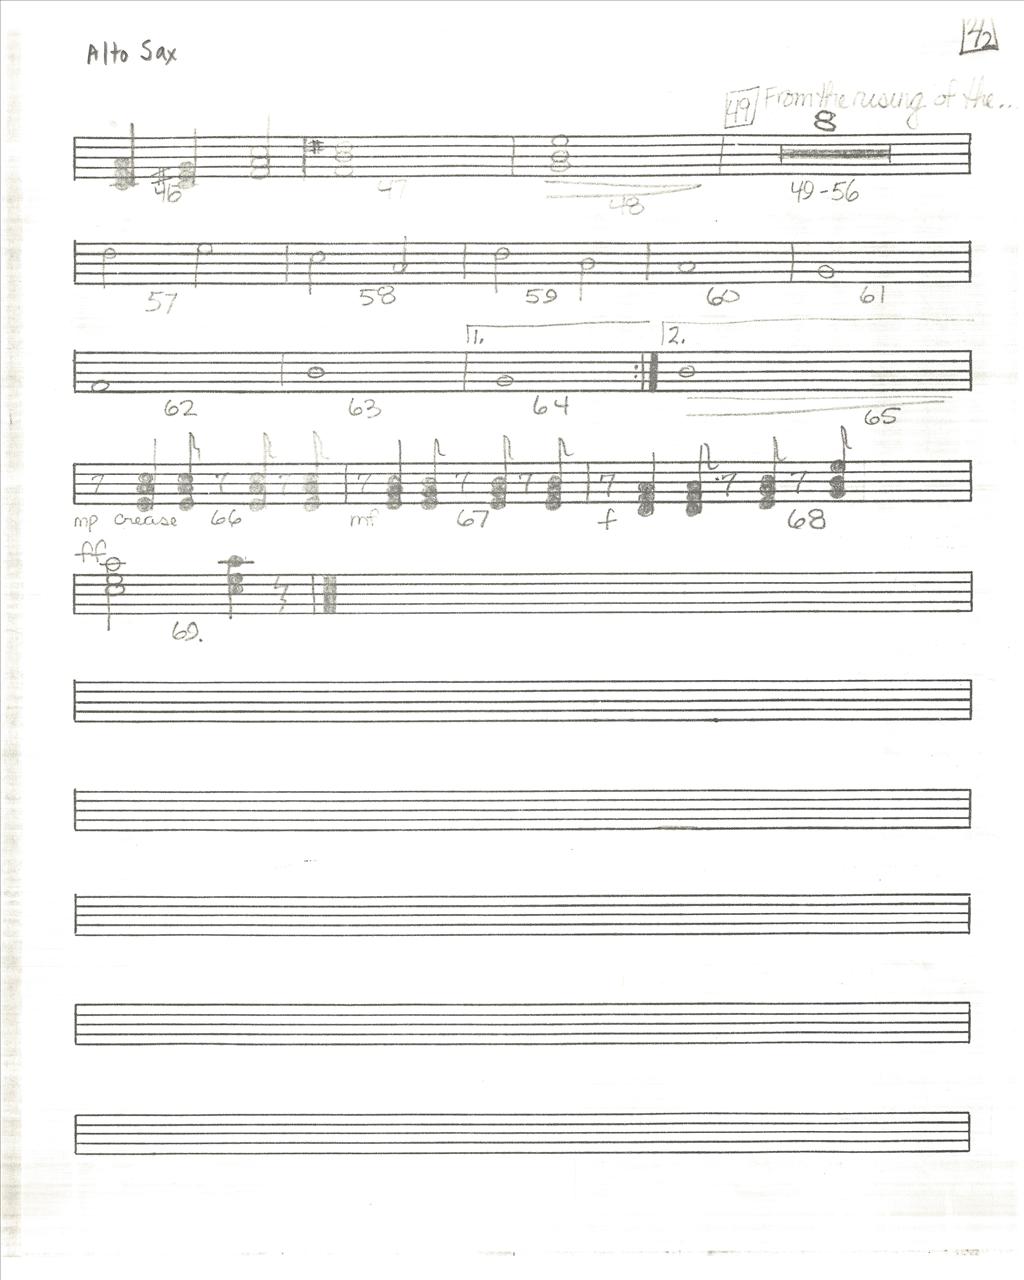 Alto Sax
4/2
49 From the rising of the...
8
46 47 48 49-56
57 58 59 60 61
1. 2.
62 63 64 65
mp crease 66 mf 67 f 68
ff
69.